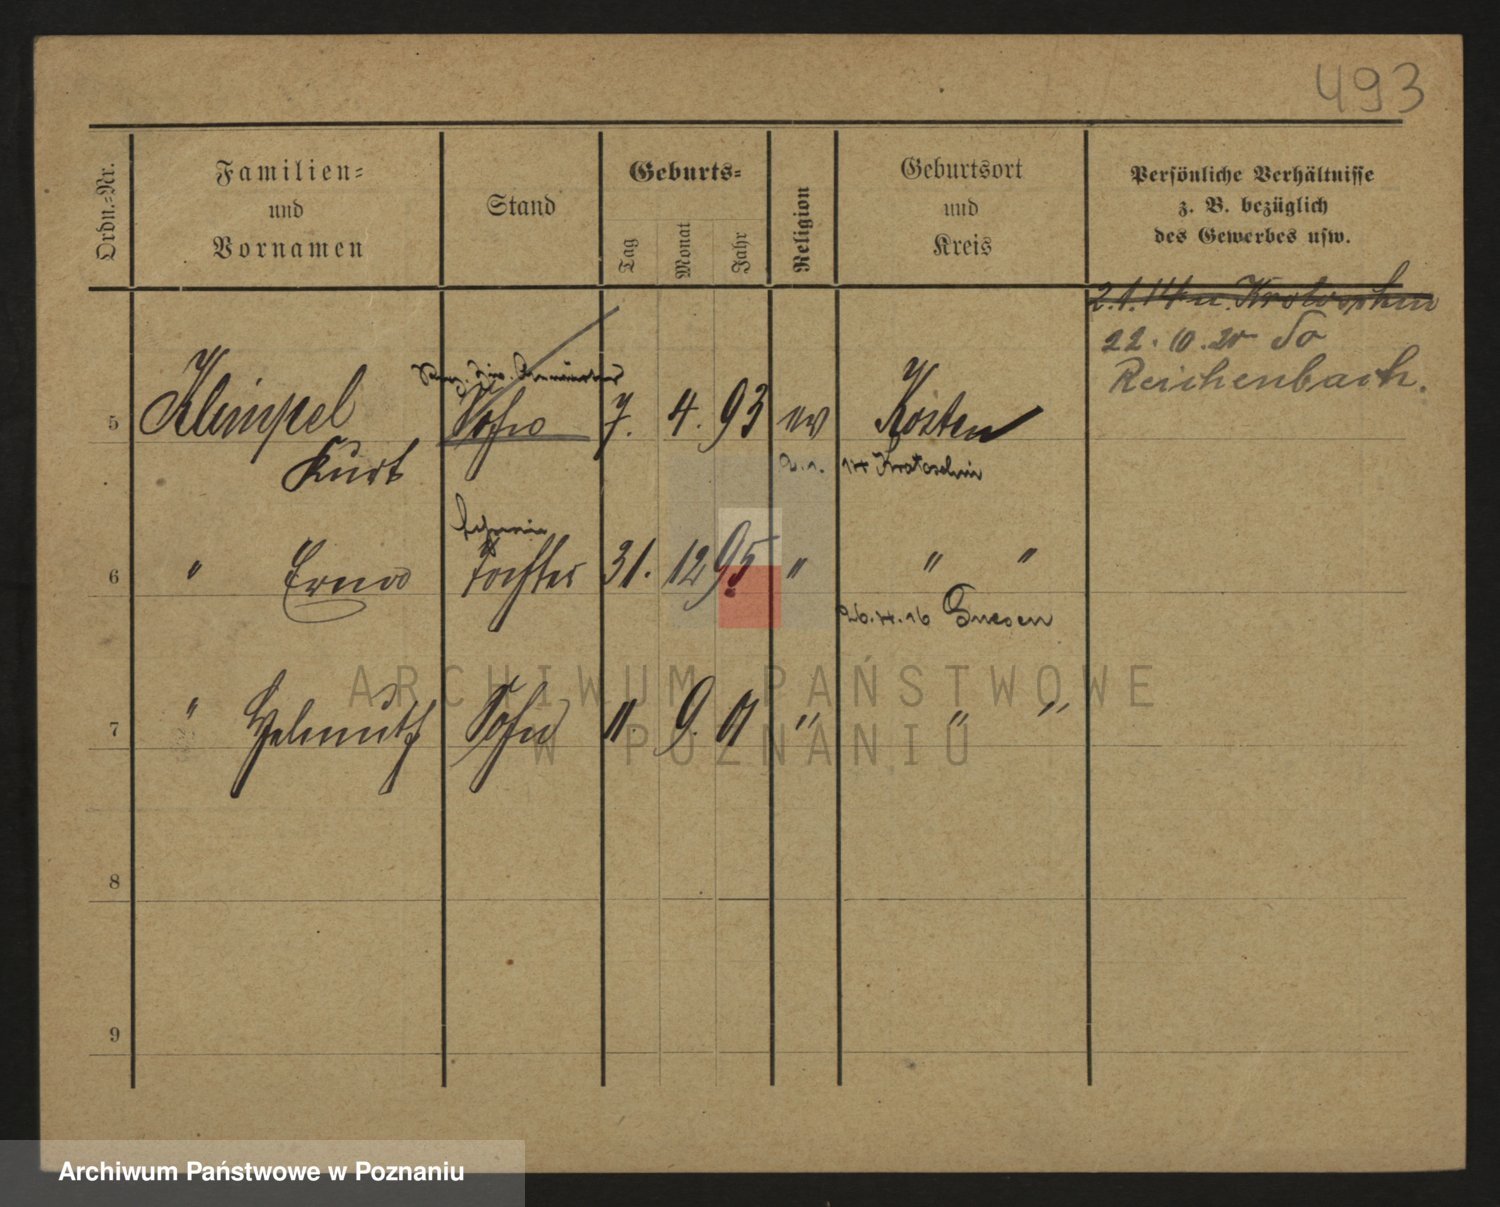 493
Ordn.-Nr.
Familien-
und
Vornamen
Stand
Geburts-
Tag
Monat
Jahr
Religion
Geburtsort
und
Kreis
Persönliche Verhältnisse
z. B. bezüglich
des Gewerbes usw.
2.1.14 n. Krotoschin
22. 10. 20 So
Reichenbach.
5 Klimpel Sohn 7. 4. 93 ev Kosten
Kurt 2. 1. 14 Krotoschin
Lehrerin
6 " Erna Tochter 31. 12 95 " " "
26.4.16 Gnesen
7 " Helmuth Sohn 11. 9. 01 " " "
8
9
ARCHIWUM PAŃSTWOWE
W POZNANIU
Archiwum Państwowe w Poznaniu